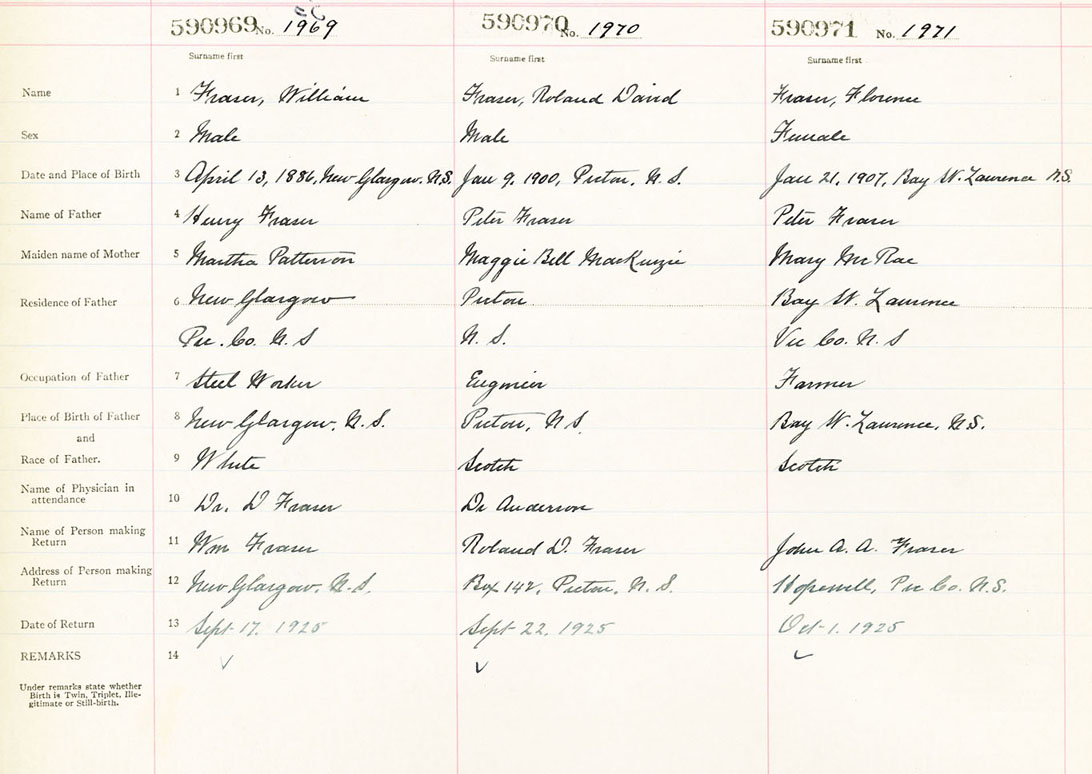 590969 No. 1969 590970 No. 1970 590971 No. 1971
Surname first Surname first Surname first
Name 1 Fraser, William Fraser, Roland David Fraser, Florence
Sex 2 Male Male Female
Date and Place of Birth 3 April 13, 1886, New Glasgow. N.S. Jan 9. 1900, Pictou, N. S. Jan 21, 1907, Bay St. Lawrence N.S.
Name of Father 4 Henry Fraser Peter Fraser Peter Fraser
Maiden name of Mother 5 Martha Patterson Maggie Bell MacKenzie Mary McRae
Residence of Father 6 New Glasgow Pictou Bay St. Lawrence
Pic. Co. N. S N. S. Vic Co. N. S
Occupation of Father 7 Steel Worker Engineer Farmer
Place of Birth of Father 8 New Glasgow, N. S. Pictou, N S. Bay St. Lawrence, N.S.
and
Race of Father. 9 White Scotch Scotch
Name of Physician in
attendance 10 Dr. D Fraser Dr Anderson
Name of Person making
Return 11 Wm Fraser Roland D. Fraser John A. A. Fraser
Address of Person making
Return 12 New Glasgow. N. S. Box 142, Pictou, N. S. Hopewell, Pic Co. N.S.
Date of Return 13 Sept 17. 1925 Sept 22. 1925 Oct 1. 1925
REMARKS 14
Under remarks state whether
Birth is Twin, Triplet, Ille-
gitimate or Still-birth.